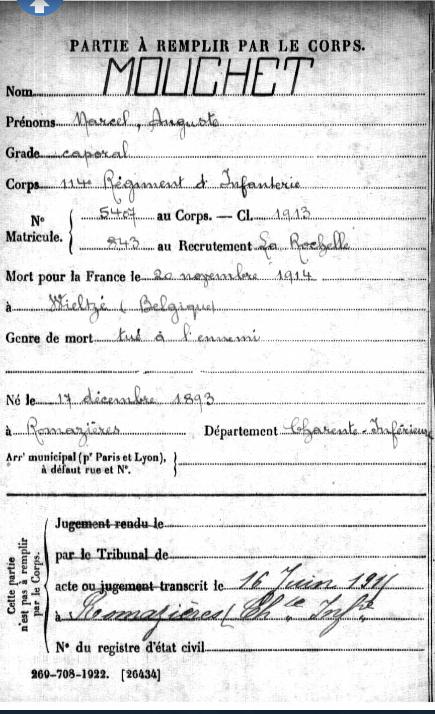 PARTIE À REMPLIR PAR LE CORPS.
Nom MOUCHET
Prénoms Marcel, Auguste
Grade caporal
Corps 114e Régiment d'Infanterie
N° Matricule. { 5407 au Corps. — Cl. 1913
843 au Recrutement La Rochelle
Mort pour la France le 20 novembre 1914
à Wieltzé (Belgique)
Genre de mort tué à l'ennemi
Né le 17 décembre 1893
à Romazières Département Charente-Inférieure
Arrt municipal (pr Paris et Lyon), à défaut rue et N°. }
Cette partie n'est pas à remplir par le Corps. {
Jugement rendu le
par le Tribunal de
acte ou jugement transcrit le 16 Juin 191
à Romazières (Ch te Infre
N° du registre d'état civil
269-708-1922. [26434]